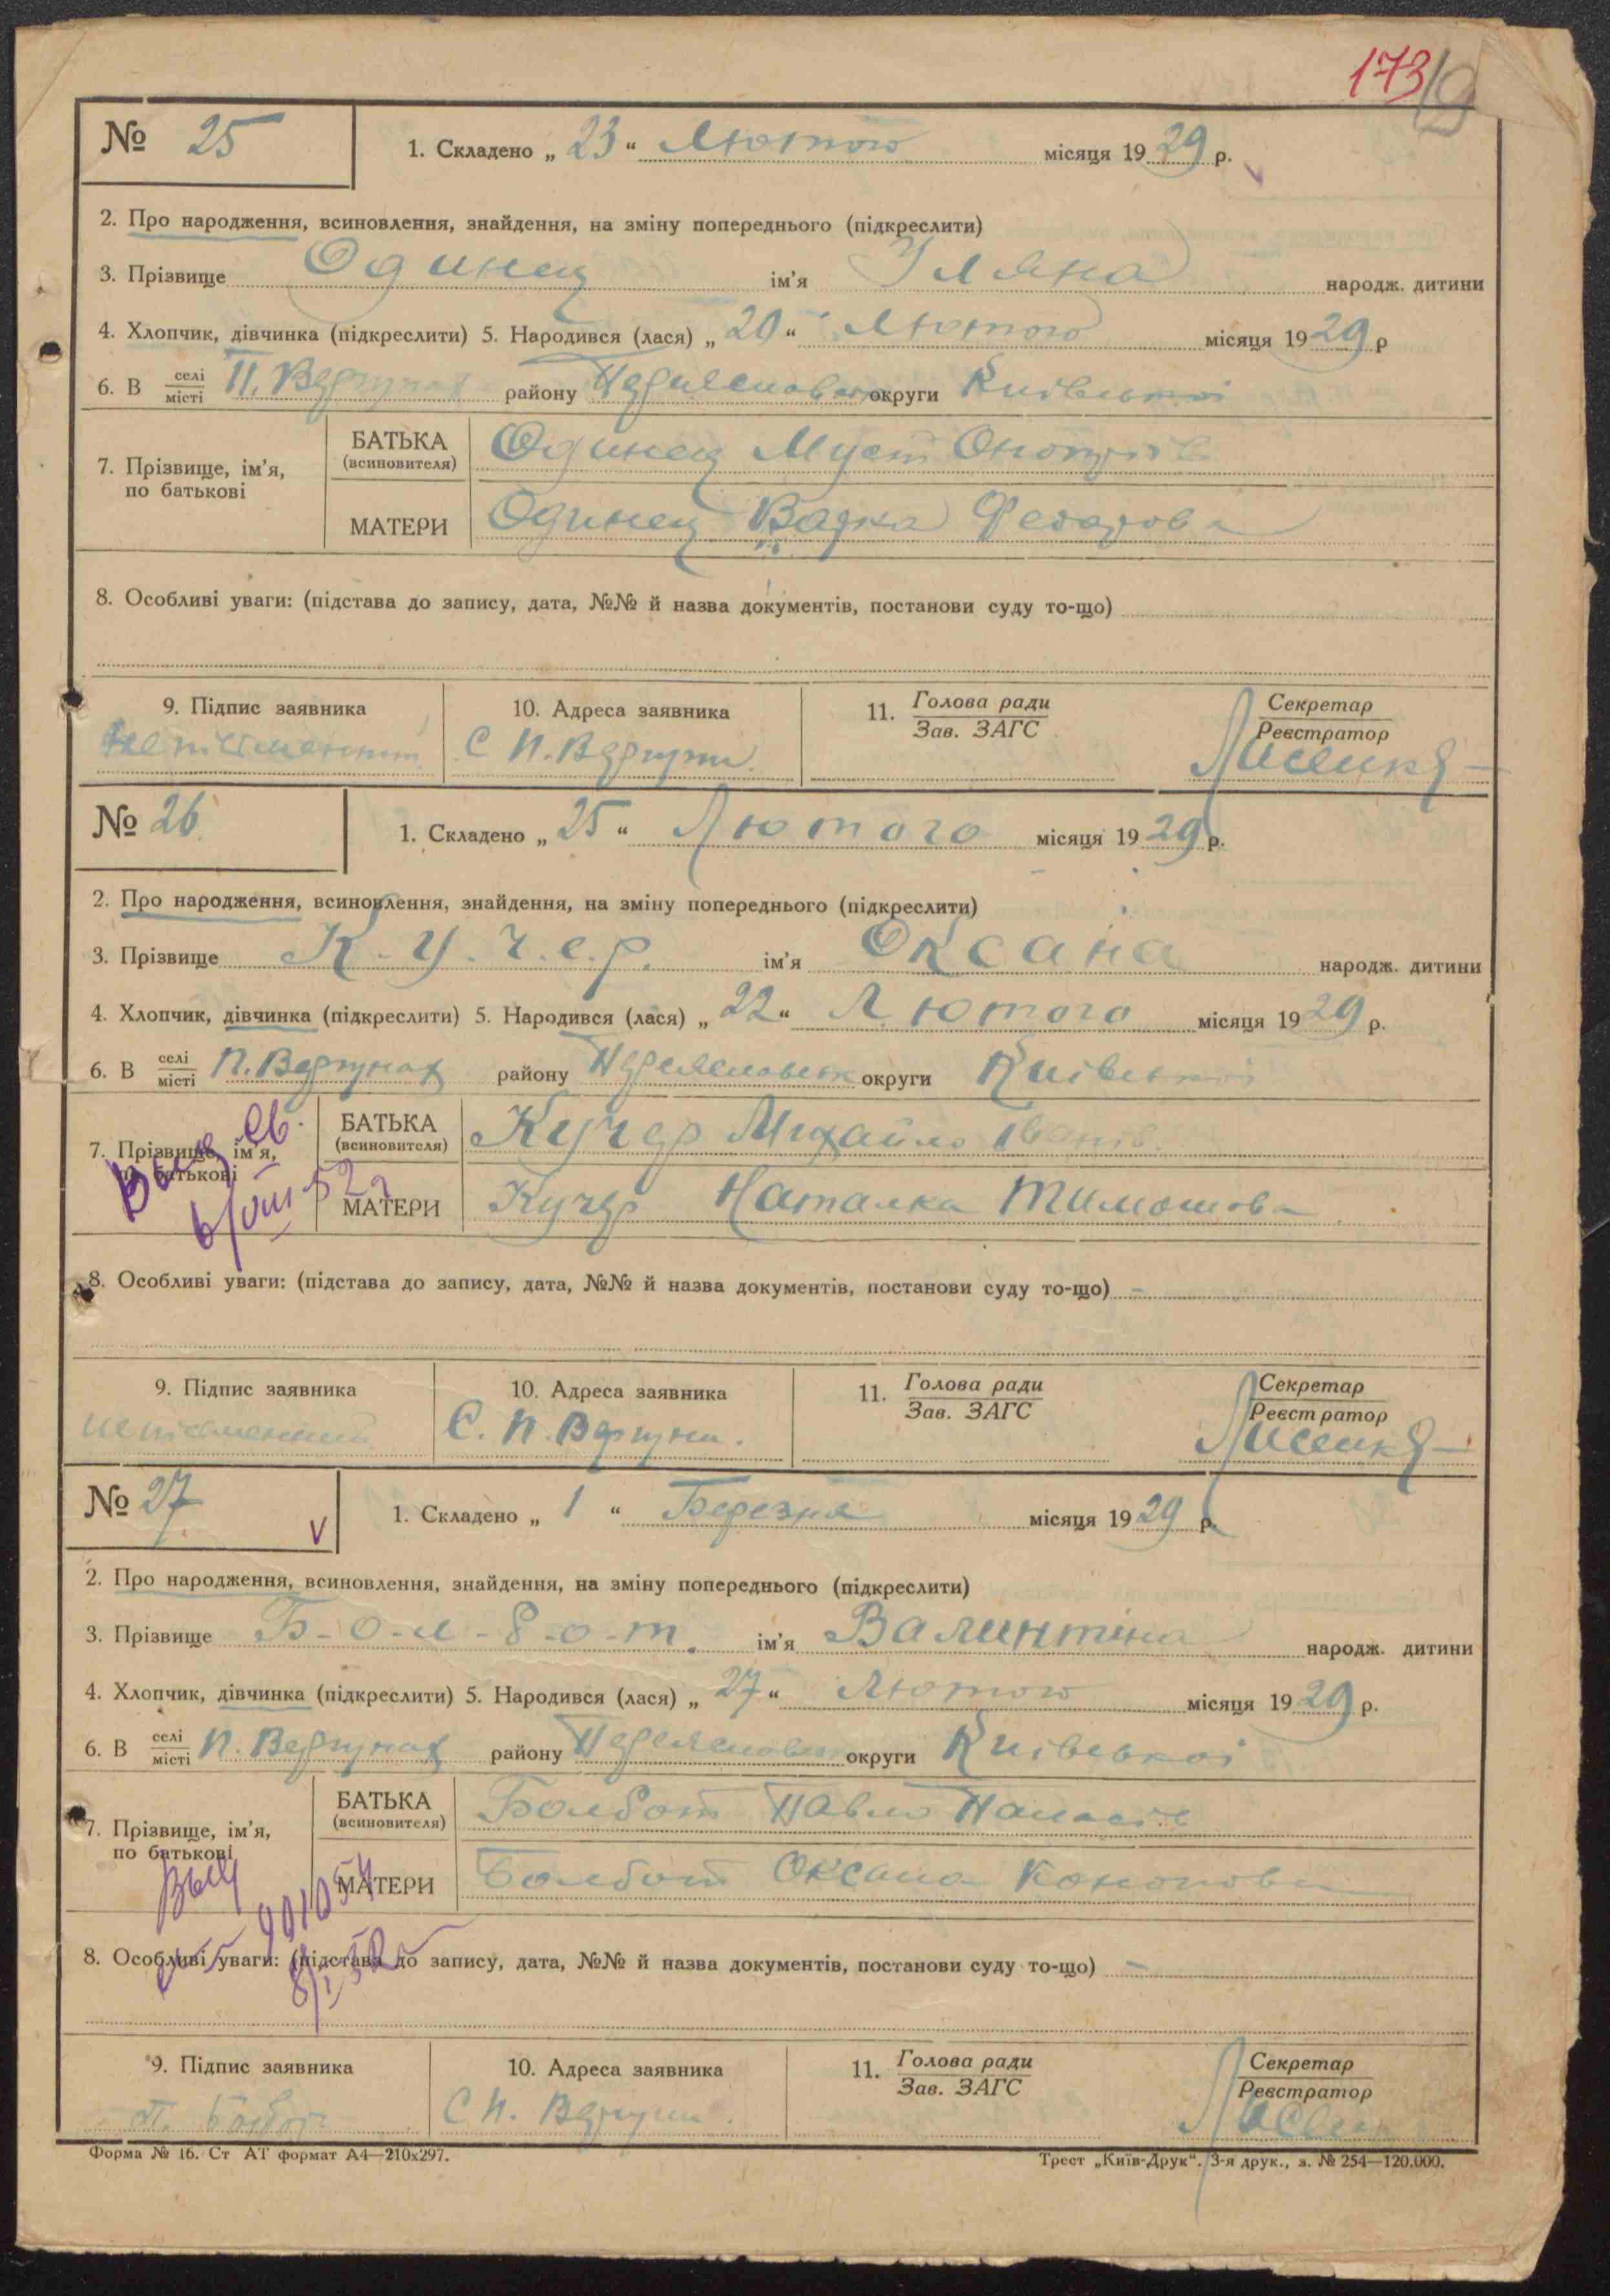 173
№ 25
1. Складено „ 23 “ Лютого місяця 1929 р.
2. Про народження, всиновлення, знайдення, на зміну попереднього (підкреслити)
3. Прізвище Одинец ім'я Уляна народж. дитини
4. Хлопчик, дівчинка (підкреслити) 5. Народився (лася) „ 20 “ Лютого місяця 1929 р
6. В селі/місті П. Вергунах району округи Київської
7. Прізвище, ім'я, по батькові
БАТЬКА (всиновителя) Одинец Мусій
МАТЕРИ Одинец Федорова
8. Особливі уваги: (підстава до запису, дата, №№ й назва документів, постанови суду то-що)
9. Підпис заявника 10. Адреса заявника 11. Голова ради/Зав. ЗАГС Секретар/Реєстратор
неписьменний С П. Вергуни
№ 26
1. Складено „ 25 “ Лютого місяця 1929 р.
2. Про народження, всиновлення, знайдення, на зміну попереднього (підкреслити)
3. Прізвище К.у.ч.е.р. ім'я Оксана народж. дитини
4. Хлопчик, дівчинка (підкреслити) 5. Народився (лася) „ 22 “ Лютого місяця 1929 р.
6. В селі/місті П. Вергунах району округи Київської
7. Прізвище, ім'я, по батькові
БАТЬКА (всиновителя) Кучер Михайло Іванів
МАТЕРИ Кучер Наталка Тимошова
8. Особливі уваги: (підстава до запису, дата, №№ й назва документів, постанови суду то-що) -
9. Підпис заявника 10. Адреса заявника 11. Голова ради/Зав. ЗАГС Секретар/Реєстратор
неписьменний С. П. Вергуни.
№ 27
1. Складено „ 1 “ Березня місяця 1929 р.
2. Про народження, всиновлення, знайдення, на зміну попереднього (підкреслити)
3. Прізвище Б-о-л-б-о-т. ім'я Валинтина народж. дитини
4. Хлопчик, дівчинка (підкреслити) 5. Народився (лася) „ 27 “ Лютого місяця 1929 р.
6. В селі/місті П. Вергунах району округи Київської
7. Прізвище, ім'я, по батькові
БАТЬКА (всиновителя) Болбот Павло Панасів
МАТЕРИ Болбот Оксана Кононова
8. Особливі уваги: (підстава до запису, дата, №№ й назва документів, постанови суду то-що) -
9. Підпис заявника 10. Адреса заявника 11. Голова ради/Зав. ЗАГС Секретар/Реєстратор
П. Болбот С П. Вергуни.
Форма № 16. Ст АТ формат А4—210х297. Трест „Київ-Друк“. 3-я друк., з. № 254—120.000.